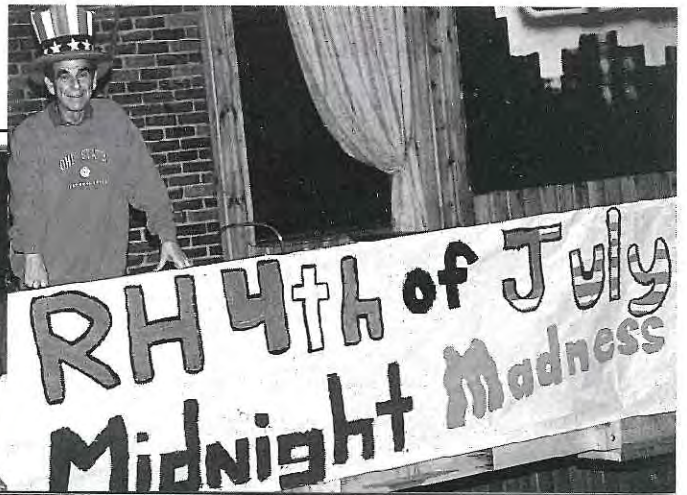 OHIO STATE
RH 4th of July
Midnight Madness